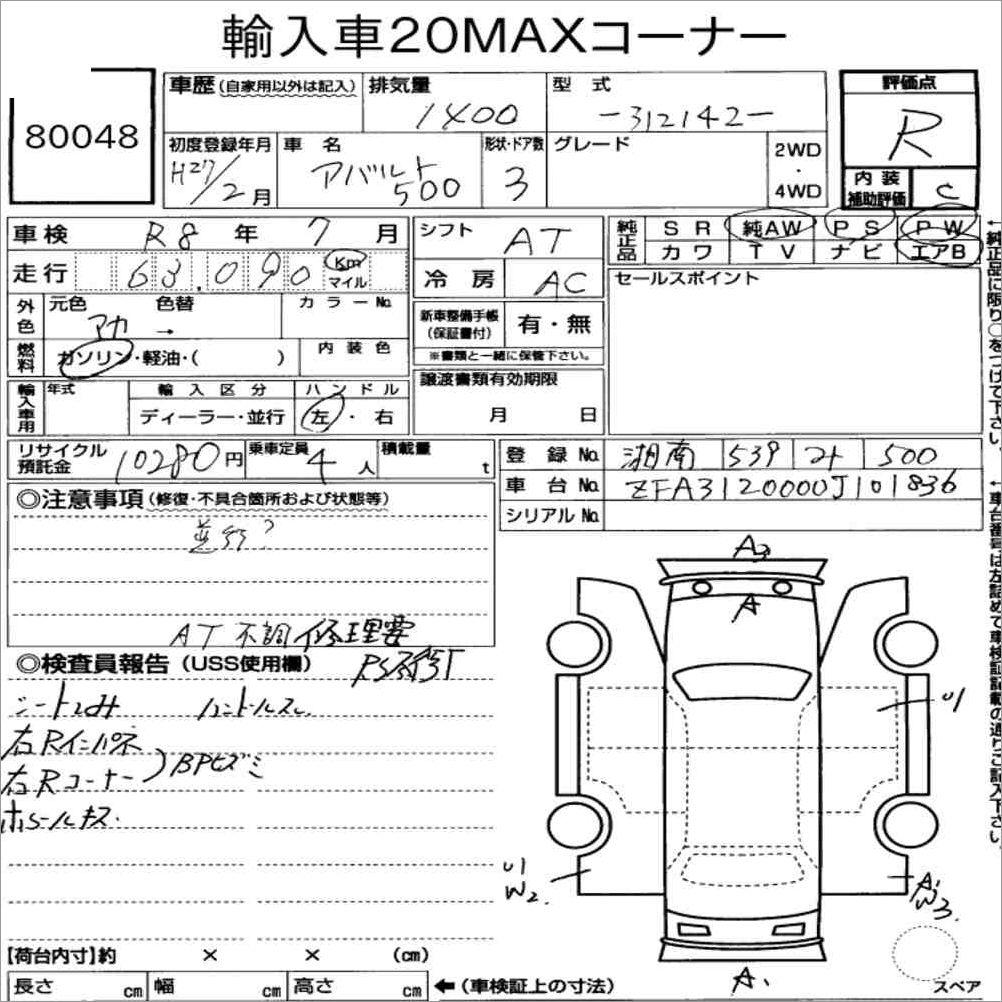 輸入車20MAXコーナー
80048
車歴 (自家用以外は記入) 排気量 1400 型式 -312142-
評価点 R
初度登録年月 H27/2月 車名 アバルト 500 形状・ドア数 3 グレード 2WD・4WD
内装補助評価 C
車検 R8年 7月
走行 63,090 Km マイル
シフト AT
冷房 AC
純正品 SR 純AW PS PW
カワ TV ナビ エアB
外色 元色 アカ → 色替 カラーNo.
燃料 ガソリン・軽油・( ) 内装色
新車整備手帳 (保証書付) 有・無
※書類と一緒に保管下さい。
セールスポイント
輸入車用 年式 輸入区分 ディーラー・並行 ハンドル 左・右
譲渡書類有効期限 月 日
リサイクル預託金 10280円 乗車定員 4人 積載量 t
登録No. 湘南 539 500
車台No. ZFA3120000J101836
シリアルNo.
◎注意事項 (修復・不具合箇所および状態等)
並行?
AT不調 修理要
◎検査員報告 (USS使用欄)
シート ハンドルスレ
右Rインパネ
右Rコーナー) BPヒズミ
ホイールキズ.
A2
A
U1
U1
W2.
A1
W3.
A.
スペア
【荷台内寸】約 × × (cm)
長さ cm 幅 cm 高さ cm ←(車検証上の寸法)
←純正品に限り○をつけて下さい。
←車台番号は左詰めで車検証記載の通りご記入下さい。